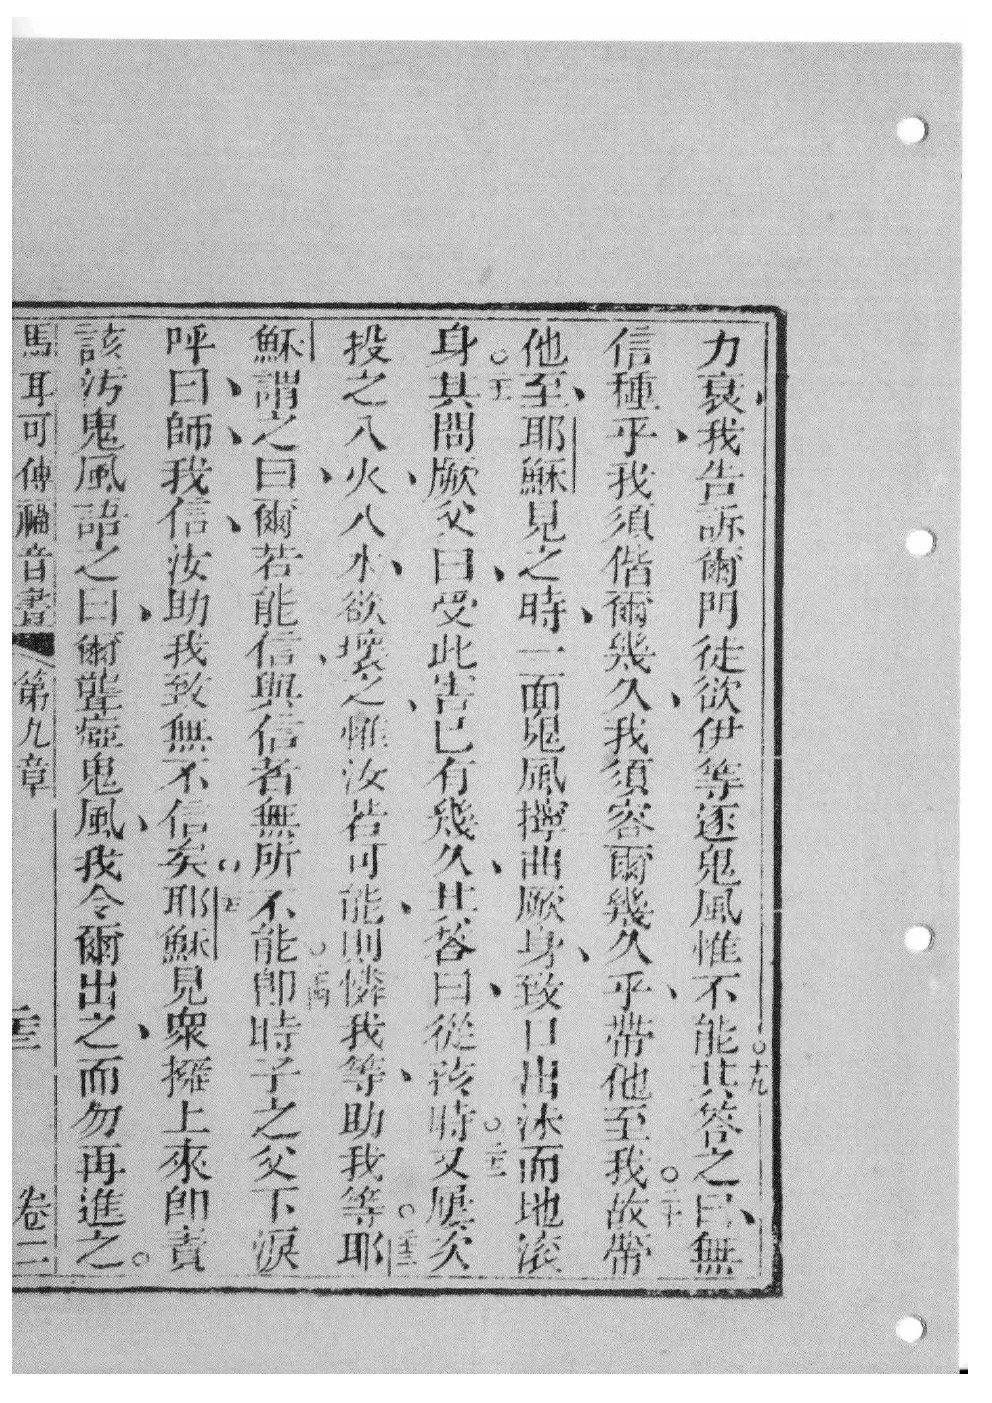 力衰、我告訴爾門徒欲伊等逐鬼風惟不能。十九其答之曰、無
信種乎、我須偕爾幾久、我須容爾幾久乎、帶他至我。二十故帶
他至、耶穌見之時、一面鬼風擰曲厥身、致口出沫而地滾
身。二十一其問厥父曰、受此害已有幾久、其答曰、從孩時。二十二又屢次
投之入火、入水、欲壞之、惟汝若可能、則憐我等、助我等。二十三耶
穌謂之曰、爾若能信、與信者無所不能。二十四卽時子之父下淚
呼曰、師、我信、汝助我致無不信矣。二十五耶穌見衆擁上來卽責
該汚鬼風語之曰、爾聾瘂鬼風、我令爾出之、而勿再進之。
馬耳可傳福音書 第九章 卷二